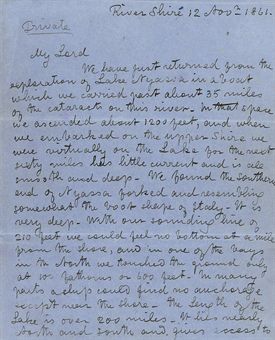 River Shiré 12 Novr 1861.
Private
My Lord
We have just returned from the
exploration of Lake Nyassa in a boat
which we carried past about 35 miles
of the cataracts on this river. In that space
we ascended about 1200 feet, and when
we embarked on the upper Shire we
were virtually on the Lake for the next
sixty miles has little current and is all
smooth and deep - We found the Southern
end of Nyassa forked and resembling
somewhat the boot shape of Italy - It is
very deep. With our sounding line of
210 feet we could feel no bottom at a mile
from the shore, and in one of the bays
in the North we touched the ground only
at 100 fathoms or 600 feet. In many
parts a ship could find no anchorage
except near the shore - The length of the
Lake is over 200 miles. It lies nearly
North and South and gives access to